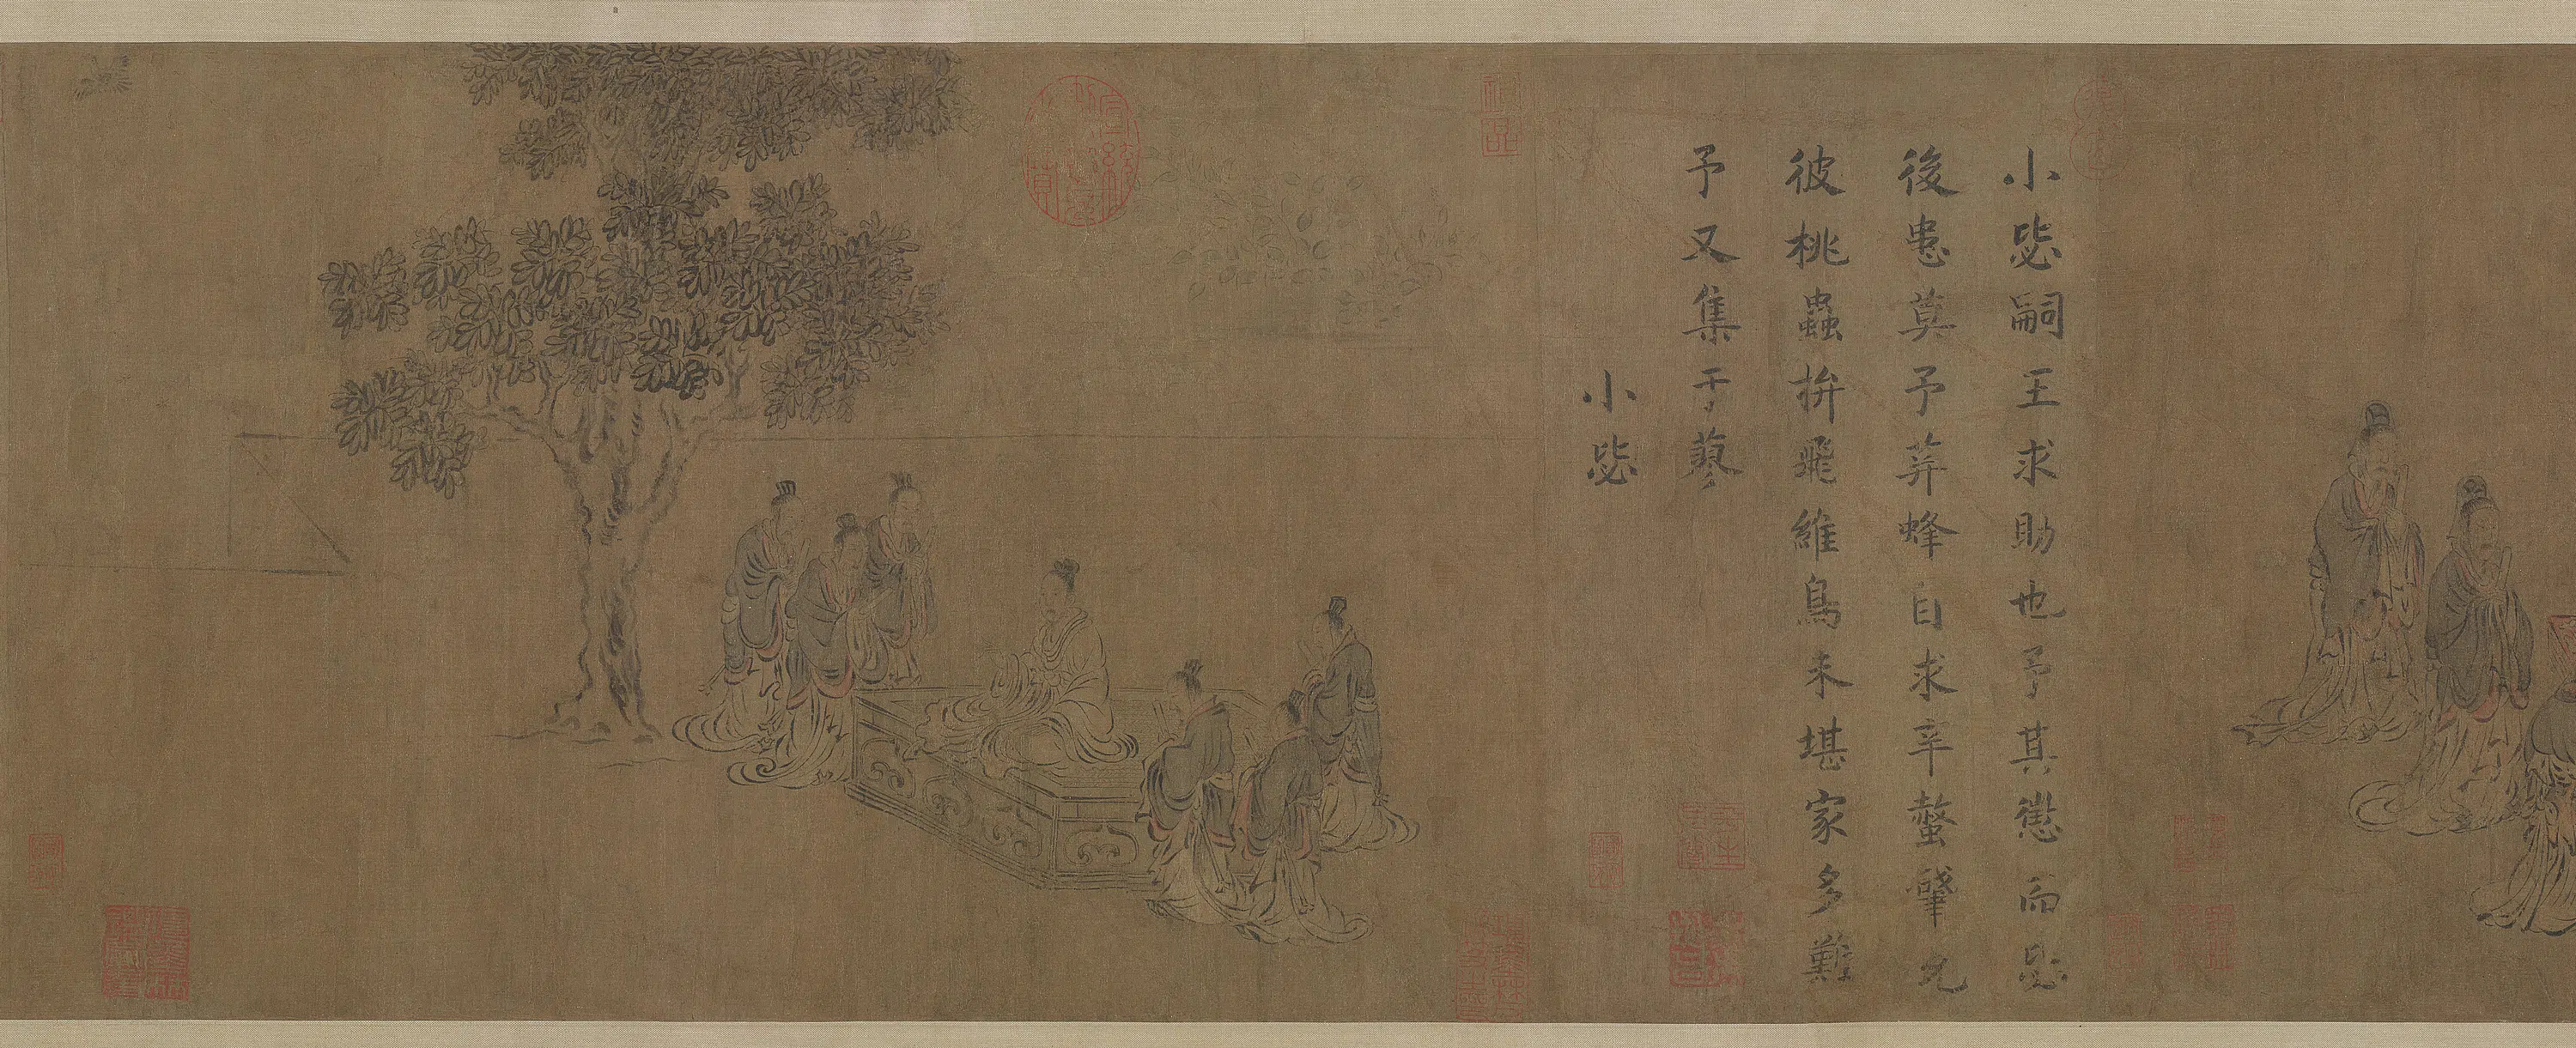 小毖嗣王求助也予其懲而毖
後患莫予荓蜂自求辛螫肇允
彼桃蟲拚飛維鳥未堪家多難
予又集于蓼
小毖